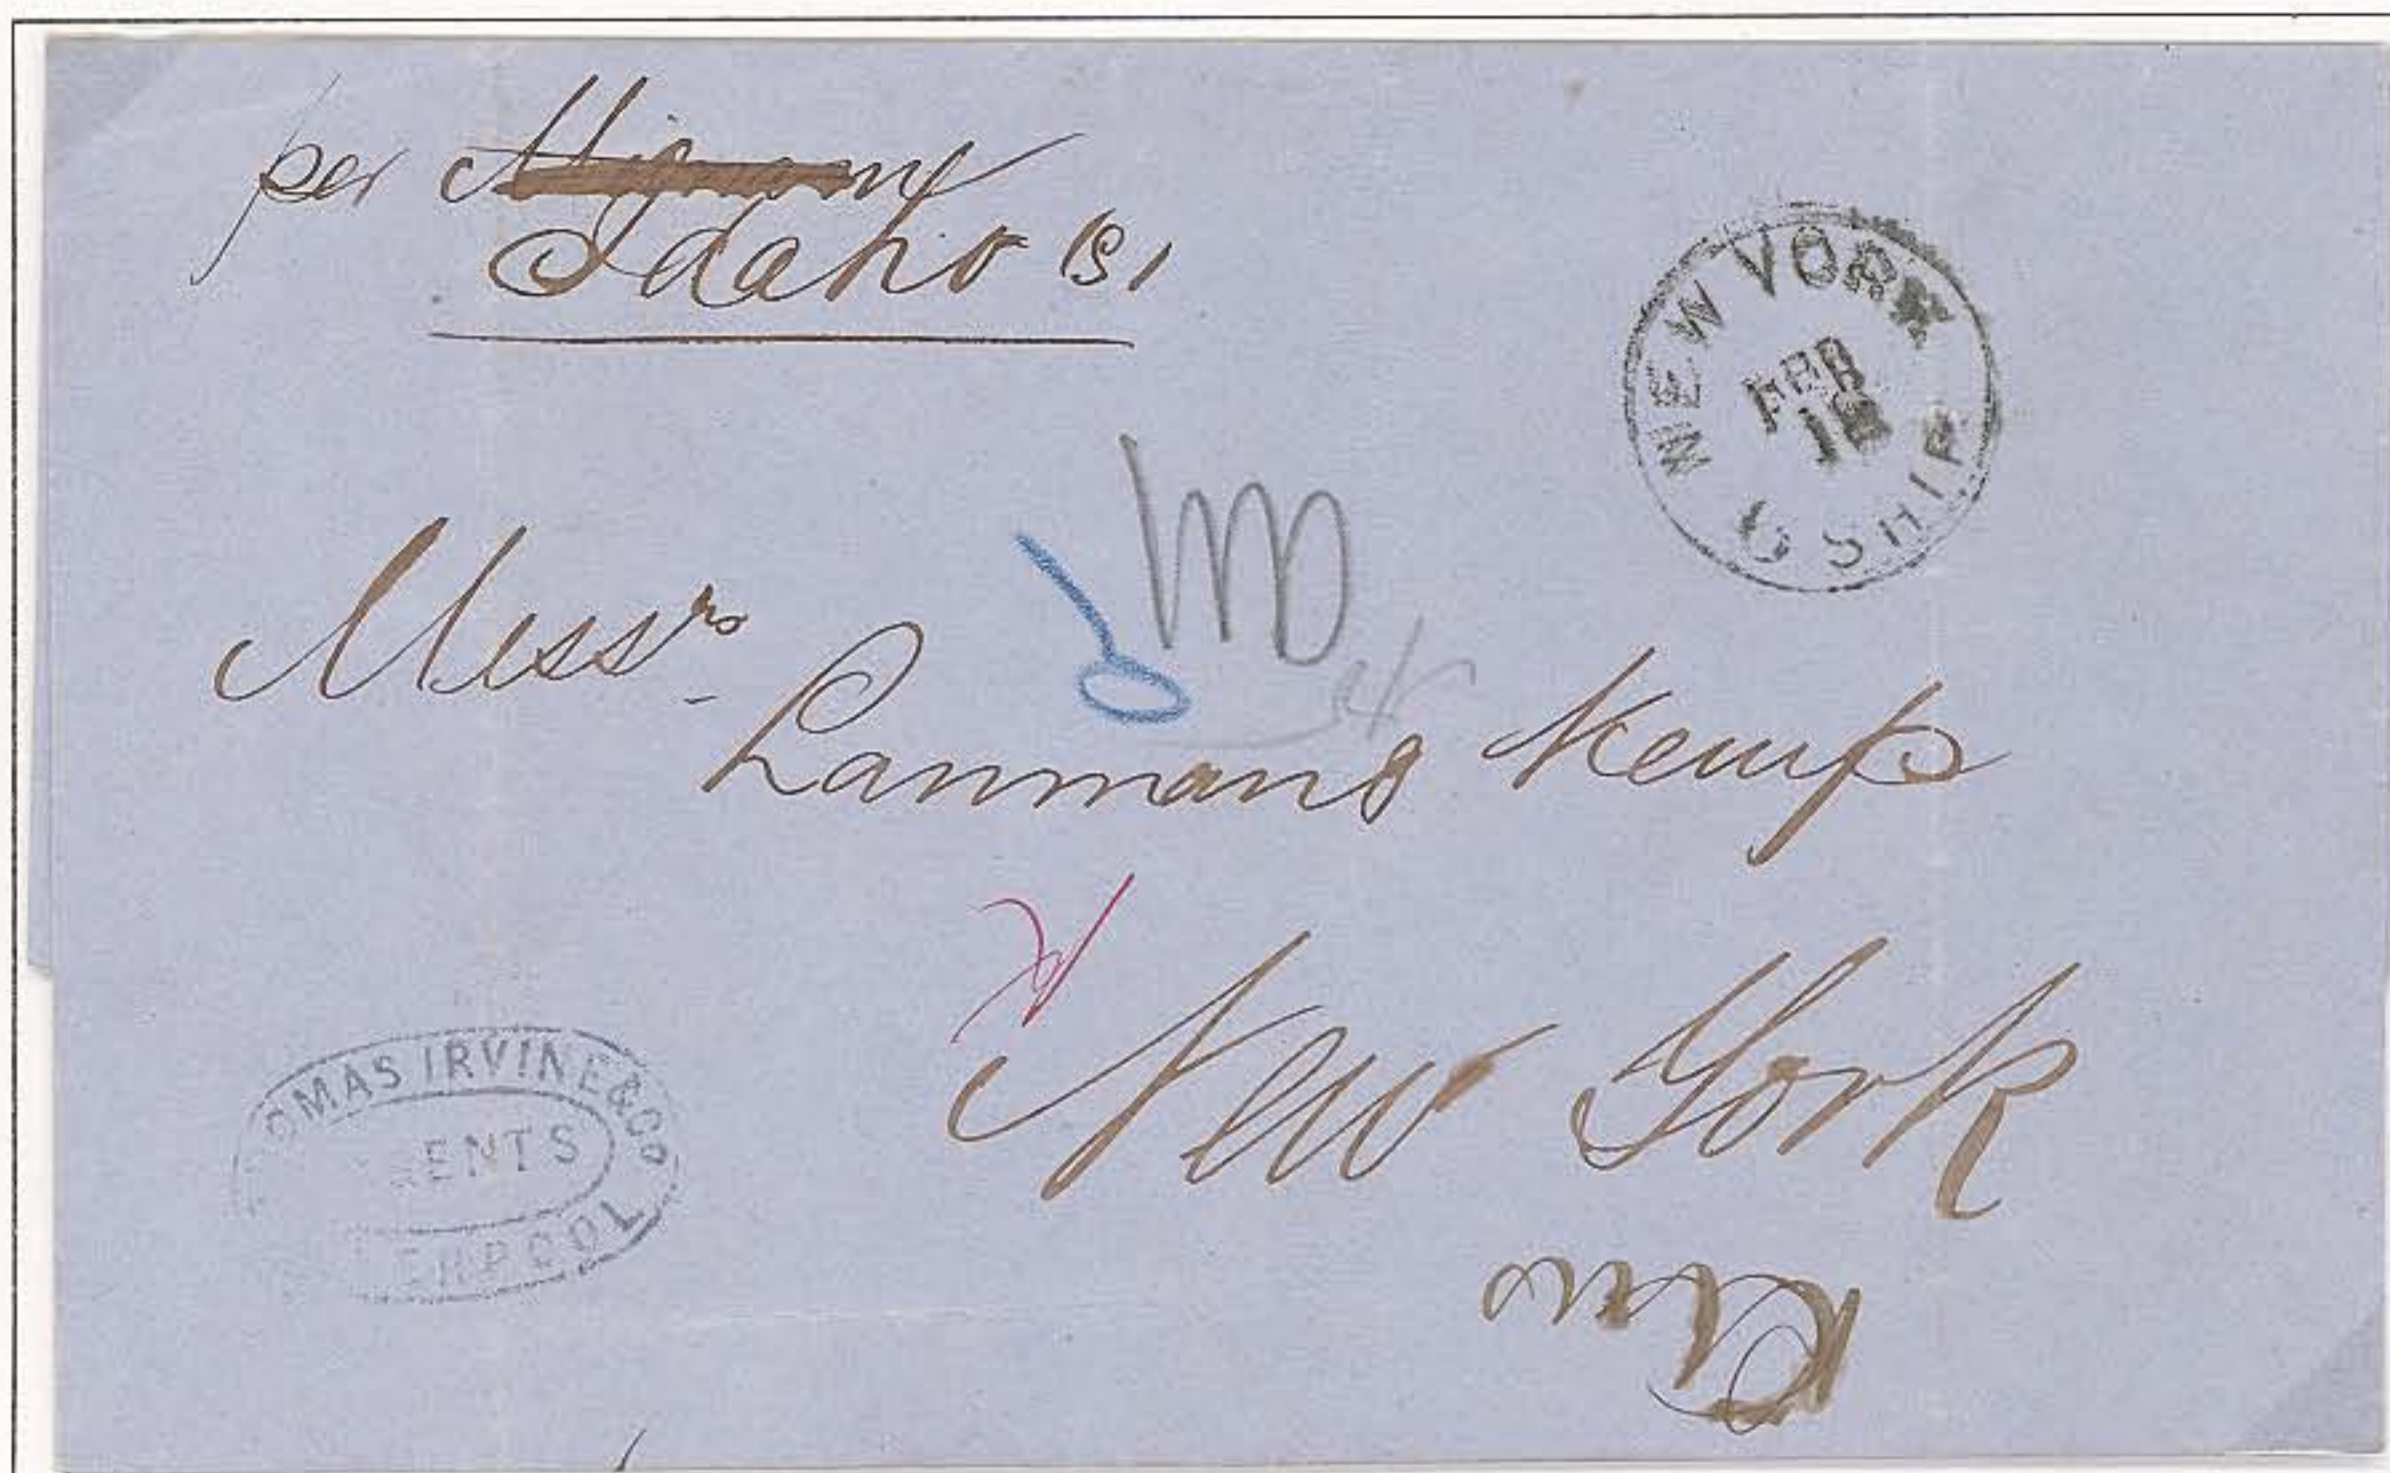 per
Idaho (S)
NEW YORK
APR
SHIP
6
Messrs
Lanman & Kemp
New York
OMAS IRVINE & CO
ENTS
ERPOOL